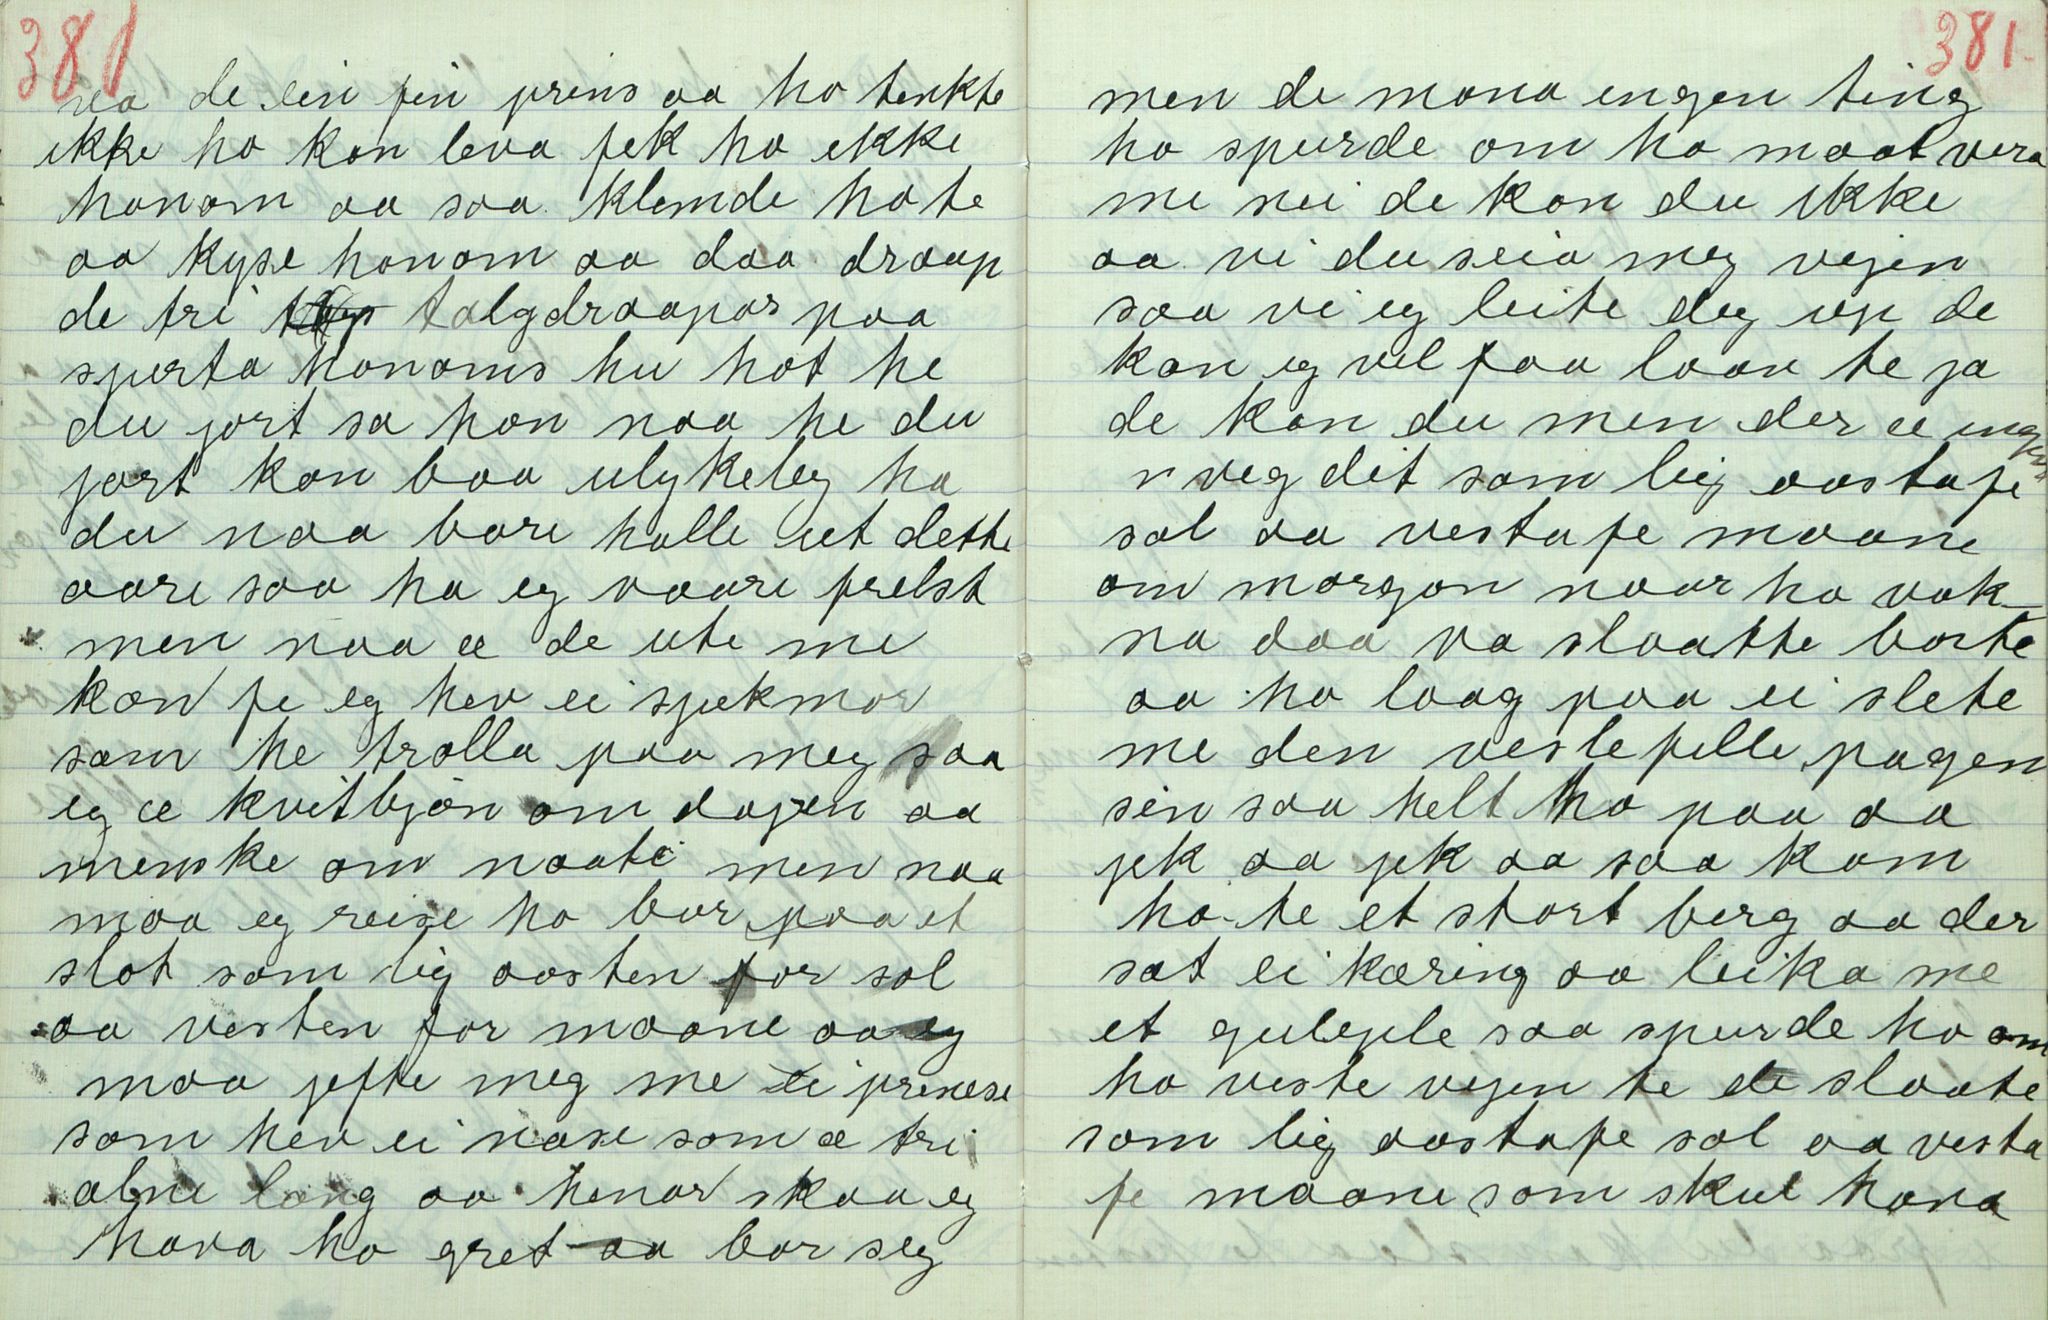 381
va de ein fin prins aa ho tenkte
ikke ho kan leva fek ho ikke
honom aa saa klemde ho te
aa kyse honom aa daa draap
de tri talgdraapar paa
sperta honoms hu hot he
du jort sa han naa he du
jort kan baa ulykeleg ha
du naa bare halle ut dette
aare saa ha eg vaare frelst
men naa æ de ute me
kan fe eg hev ei stjekmor
som he trolla paa meg saa
eg æ kvitbjøn om dagen aa
menske om naati men naa
maa eg reise ho bur paa et
slot som lig aasten for sol
aa vesten for maane aa eg
maa jefte meg me ei prinsese
som hev ei nase som æ tri
alne lang aa henar skaa eg
hava ho gret aa bar seg
381.
men de mona ingen ting
ho spurde om ho maat vera
me nei de kan du ikke
aa vi du seia meg vejen
saa vi eg leite deg up de
kan eg vel faa laav te ja
de kan du men der æ ingen
veg dit som lig aastafe
sol aa vestafe maane
om morgon naar ho vak-
na daa va slaatte borte
aa ho laag paa ei slete
me den vesle fille pagen
sin saa helt ho paa aa
jek aa jek aa saa kom
ho te et stort berg aa der
sat ei kæring aa leika me
et guleple saa spurde ho om
ho viste vejen te de slaate
som lig aastafe sol aa vesta
fe maane som skul hava